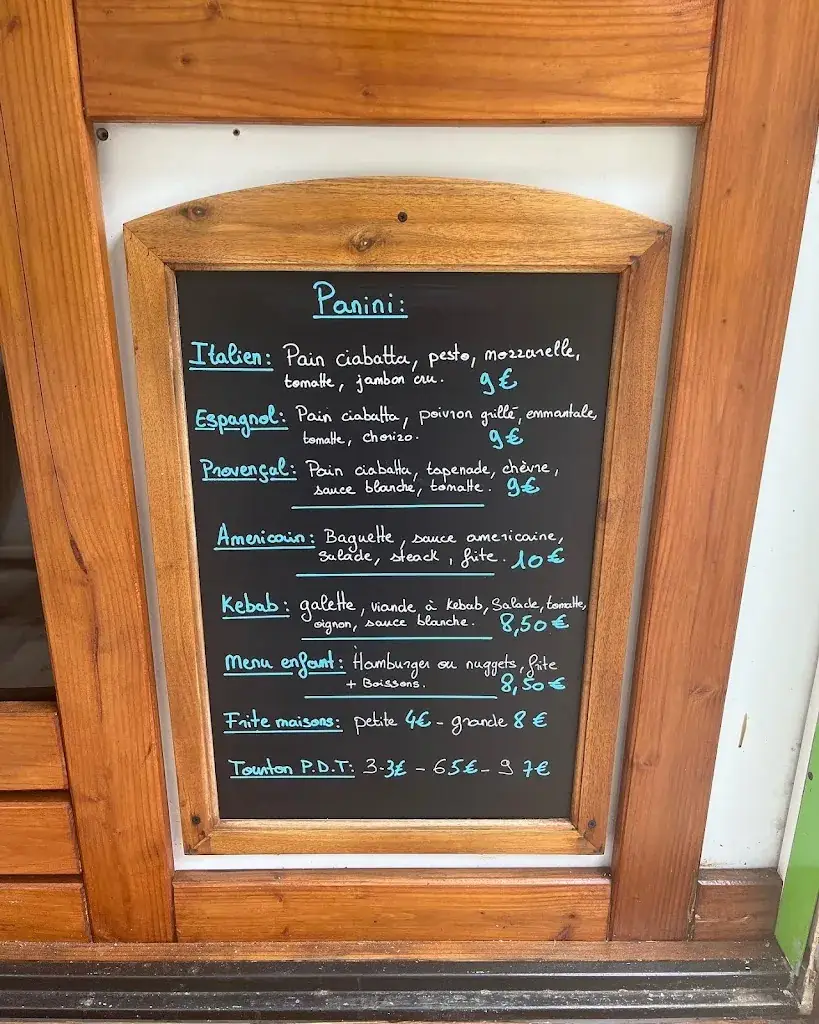 Panini:
Italien: Pain ciabatta, pesto, mozzarelle,
tomatte, jambon cru. 9€
Espagnol: Pain ciabatta, poivron grillé, emmantale,
tomatte, chorizo. 9€
Provençal: Pain ciabatta, tapenade, chèvre,
sauce blanche, tomatte. 9€
Americain: Baguette, sauce americaine,
Salade, steack, frite. 10€
Kebab: galette, viande à kebab, Salade, tomatte,
oignon, sauce blanche. 8,50€
Menu enfant: Hamburger ou nuggets, frite
+ Boissons. 8,50€
Frite maisons: petite 4€ - grande 8€
Tourton P.D.T: 3.3€ - 6 5€ - 9 7€